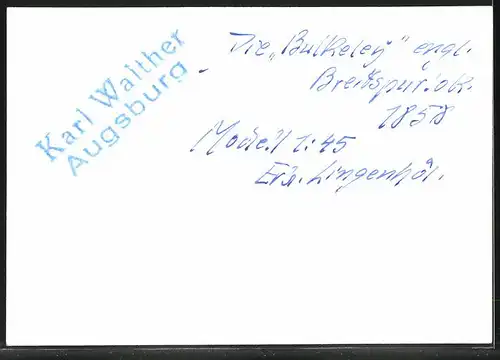 Karl Walther
Augsburg
Die „Bulkeley" engl.
Breitspurlok.
1858
Modell 1:45